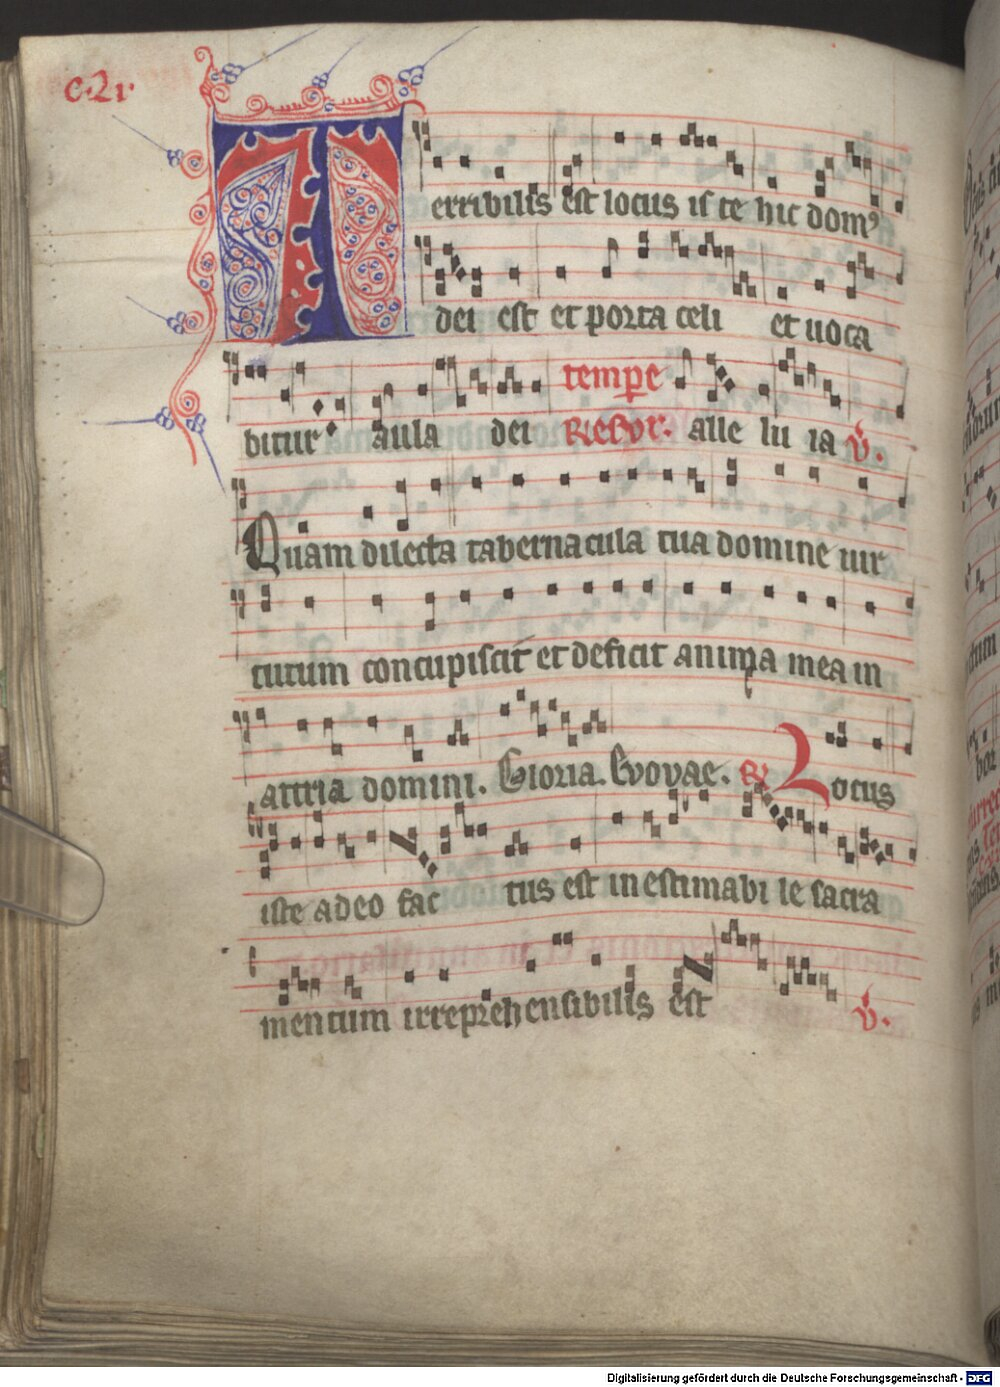 c.21.
Terribilis est locus iste hic domꝰ
dei est et porta celi et uoca
bitur aula dei tempe
resur. alle lu ia v̇.
Quam dilecta tabernacula tua domine uir
tutum concupiscit et deficit anima mea in
atria domini. Gloria. Evovae. R Locus
iste a deo fac tus est inestimabi le sacra
mentum irreprehensibilis est v̇.
Digitalisierung gefördert durch die Deutsche Forschungsgemeinschaft - DFG